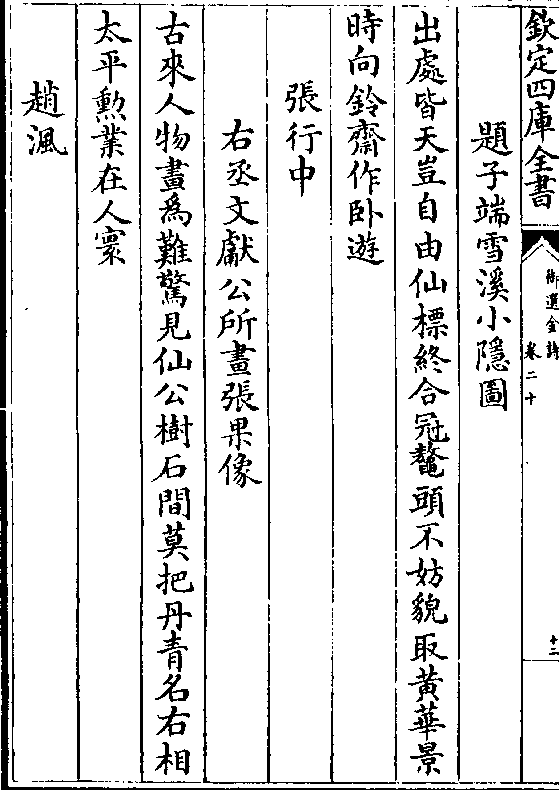 欽定四庫全書
御選金詩
卷二十
十二
題子端雪溪小隱圖
出處皆天豈自由仙標終合冠鼇頭不妨貌取黃華景
時向鈴齋作卧遊
張行中
右丞文獻公所畫張果像
古來人物畫爲難驚見仙公樹石間莫把丹青名右相
太平勲業在人寰
趙渢